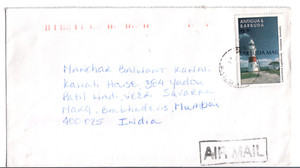 ANTIGUA &
BARBUDA
Manohar Balwant Kawli
Kawali House, 364 Yadav
Patil Wadi, Veer Savarkar
Marg, Prabhadevi, Mumbai
400025 India
AIR MAIL